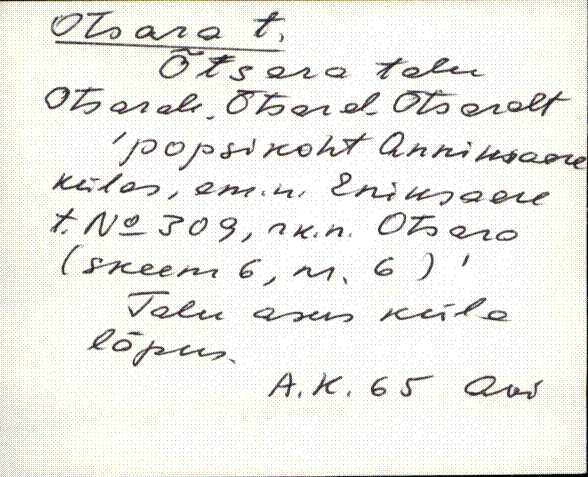 Otsara t.
Õtsara talu
Otsarale, Õtsarel, Otsaralt
'popsikoht Anniksaare
külas, am.n. Eniksaare
t. No 309, rk.n. Otsara
(skeem 6, nr. 6)'
Talu asus küla
lõpus.
A.K. 65 Avi